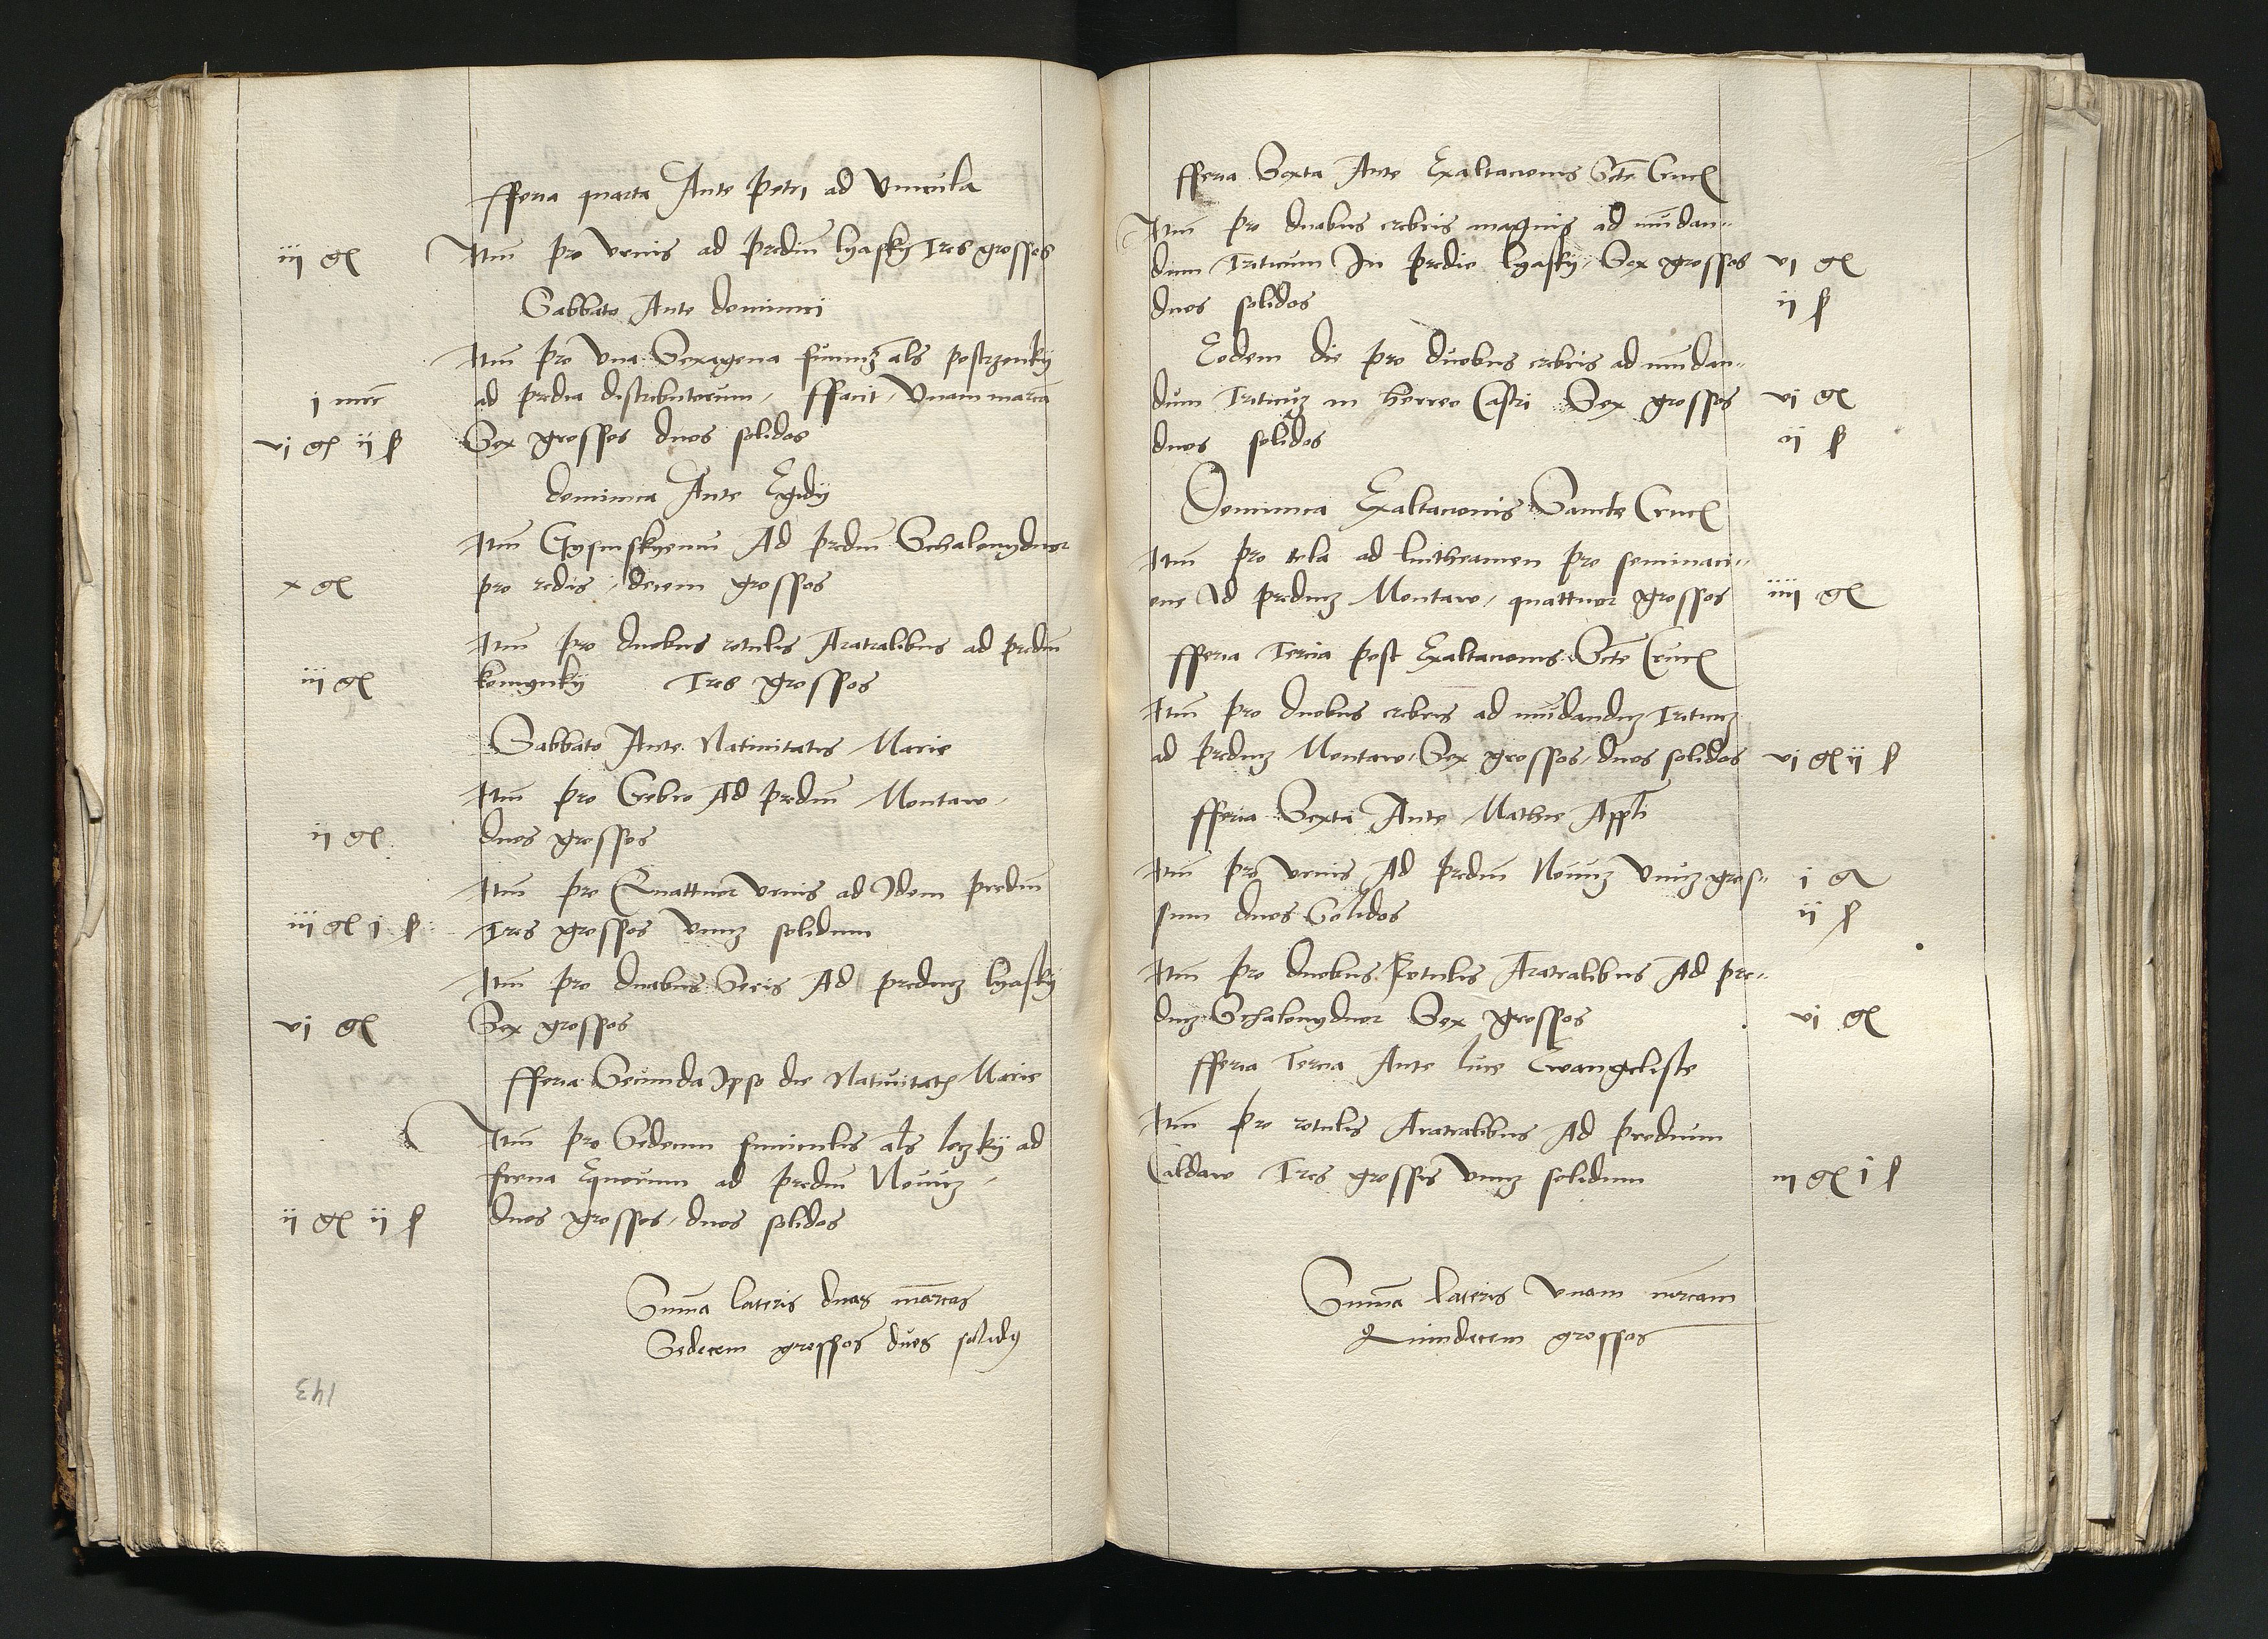 fferia quarta Ante Petri ad Vincula
iij gl Itm pro vrnis ad prediu lyasky Tres grossos
Sabbato Ante dominici
Itm pro vna Sexagena funiuz als postrzonky
j mrc ad predia distributorum, ffacit, Vnam marca
vj gl ij ß Sex grossos duos solidos
dominica Ante Egidy
Itm ad prediu Schalonydwor
x gl pro redis, decem grossos
Itm pro duobus rotulis Aratralibus ad prediu
iij gl konynky Tres grossos
Sabbato Ante Natiuitatis Marie
Itm pro Crebro Ad prediu Montaw,
ij gl duos grossos
Itm pro Quattuor vrnis ad Idem prediu
iij gl j ß Tres grossos vnuz solidum
Itm pro duabus Seris Ad prediuz lyasky
vj gl Sex grossos
fferia Secunda Ipso die Natiuitatis Marie
Itm pro Sedecim funiculis als leczky ad
frena Equorum ad prediu Nouuz,
ij gl ij ß duos grossos, duos solidos
Summa lateris duas marcas
Sedecem grossos duos solidos
143
fferia Sexta Ante Exaltacionis Scte Crucis
Itm pro duabus crebris magnis ad mundan-
dum Triticum In predio lyasky, Sex grossos vj gl
duos solidos ij ß
Eodem die pro duobus crebris ad mundan-
dum Triticuz in horreo Castri Sex grossos vj gl
duos solidos ij ß
Dominica Exaltacionis Sancte Crucis
Itm pro tela ad lintheamen pro seminaci-
one Ad prediuz Montaw, quattuor grossos iiij gl
fferia Tercia post Exaltacionis Scte Crucis
Itm pro duobus crebris ad mundanduz Triticuz
ad prediuz Montaw, Sex grossos, duos solidos vj gl ij ß
fferia Sexta Ante Mathei Appli
Itm pro vrnis Ad prediu Nouuz Vnuz gros- j gl
sum duos Solidos ij ß
Itm pro duobus Rotulis Aratralibus Ad pre-
diuz Schalonydwor Sex grossos vj gl
fferia Tercia Ante luce Ewangeliste
Itm pro rotulis Aratralibus Ad predium
Caldaw Tres grossos vnuz solidum iij gl j ß
Summa lateris Vnam marcam
Quindecem grossos